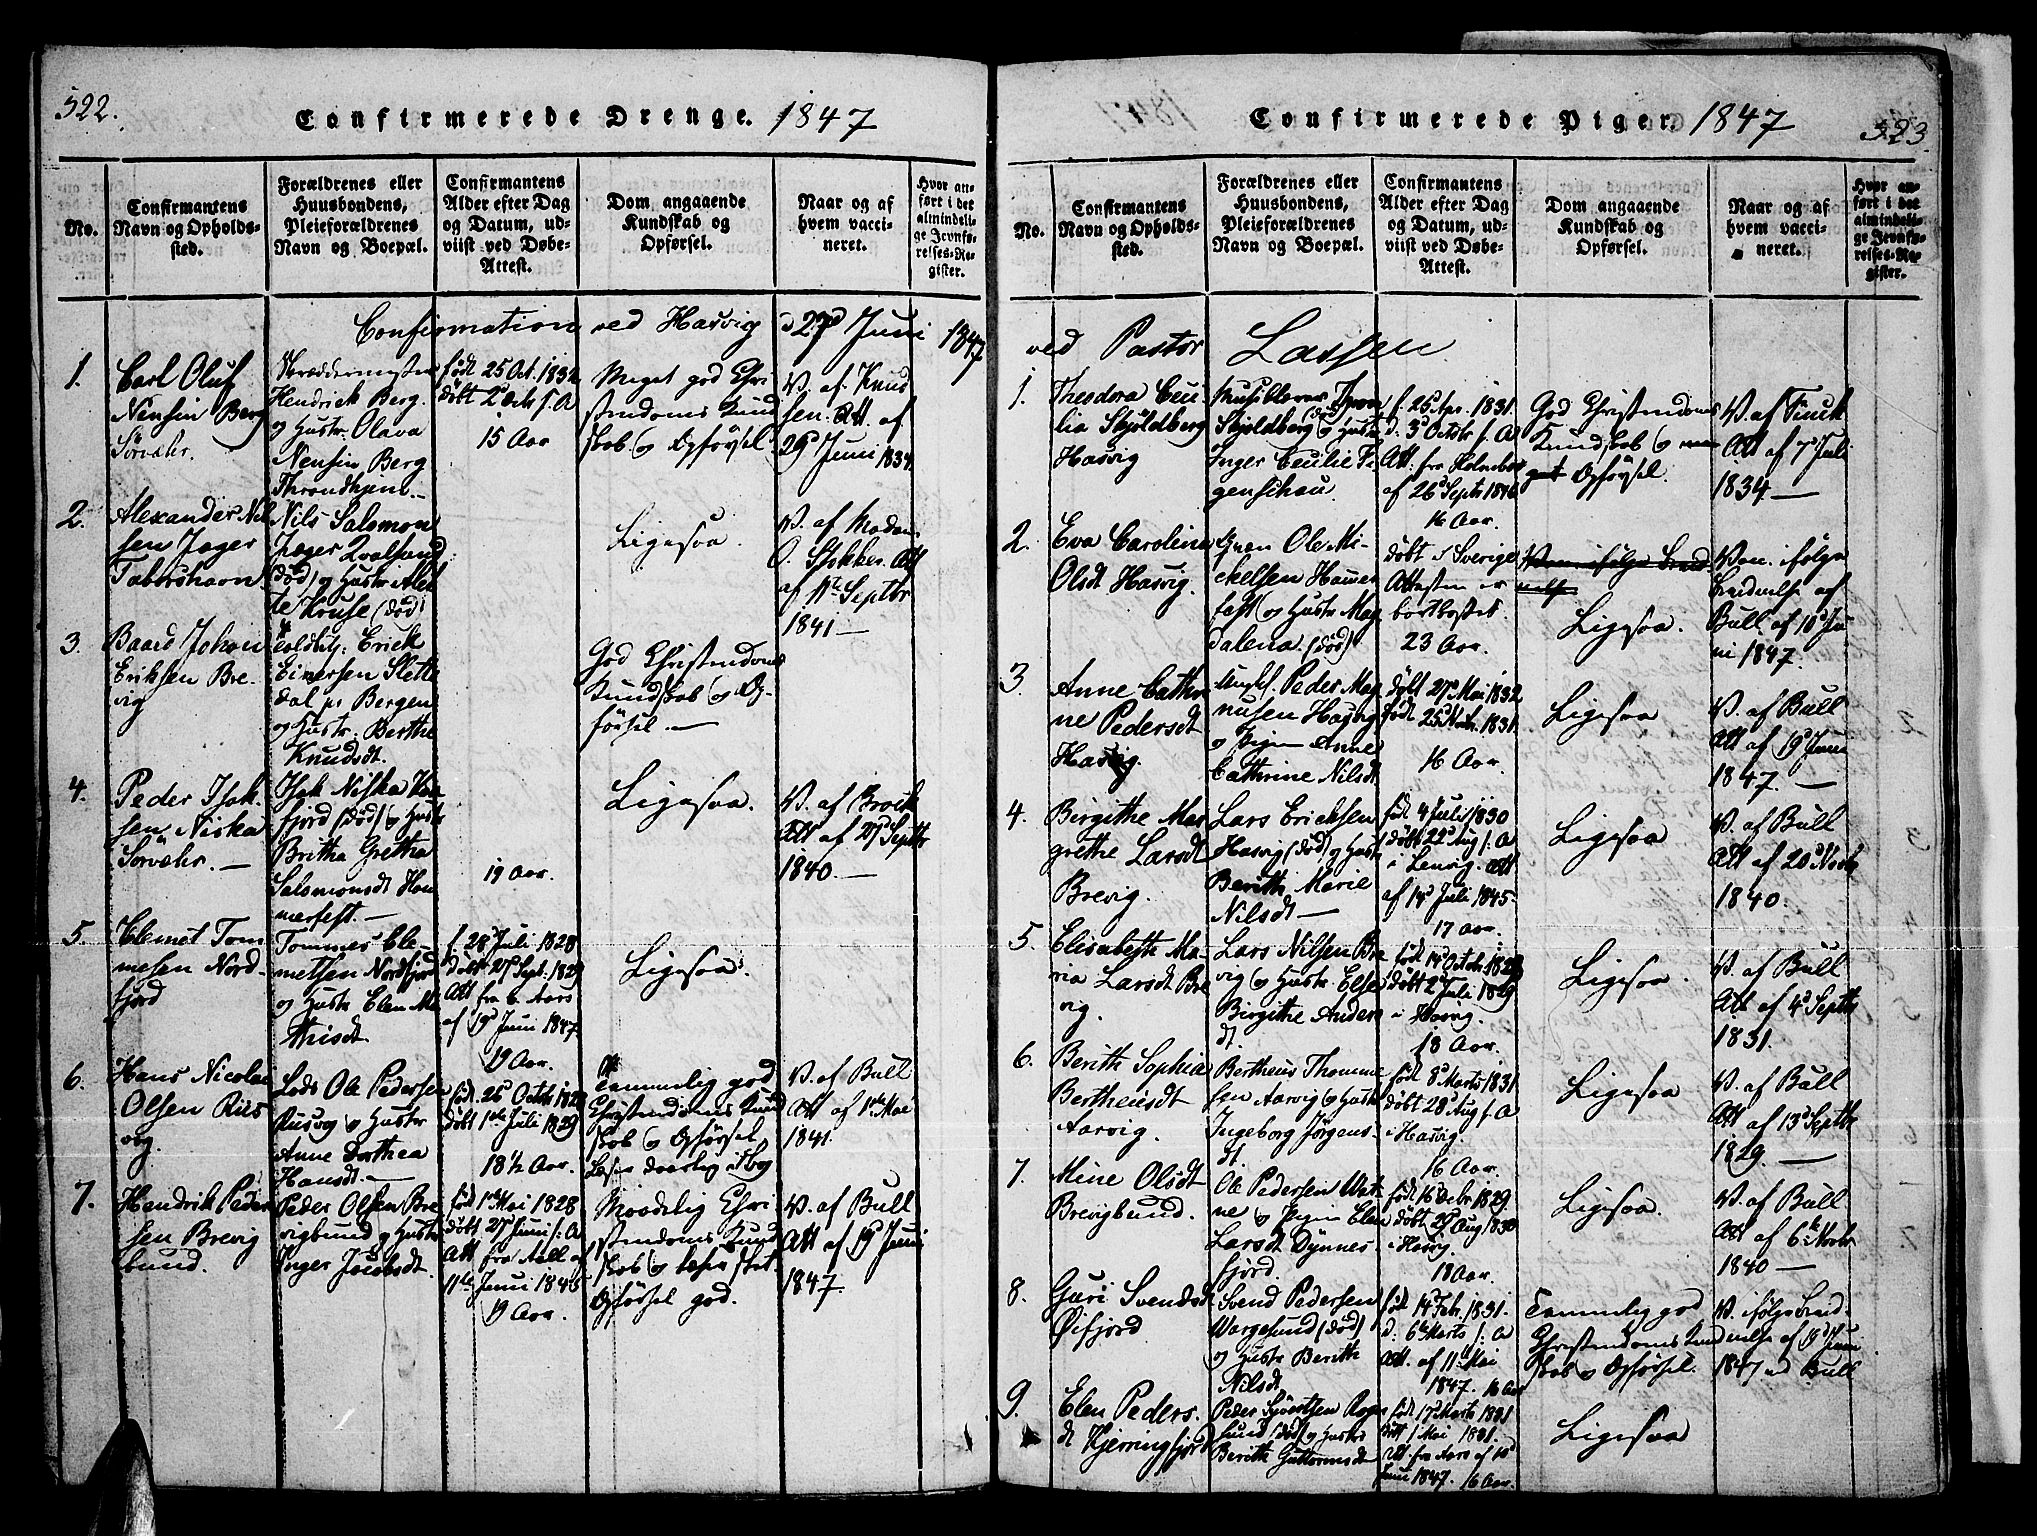 522.
Confirmerede Drenge. 1847
No.
Confirmantens
Navn og Opholds-
sted.
Forældrenes eller
Huusbondens,
Pleieforældrenes
Navn og Boepæl.
Confirmantens
Alder efter Dag
og Datum, ud-
viist ved Døbe-
Attest.
Dom angaaende
Kundskab og
Opførsel.
Naar og af
hvem vacci-
neret.
Hvor an-
ført i det
almindeli-
ge Jevnfø-
relses-Re-
gister.
Confirmation ved Hasvig d 27d Juni 1847
1.
Carl Oluf
Nensin Berg
Sörvær.
Skræddermester
Hendrick Berg
og Hustr: Olava
Nensin Berg
Throndhjem.
født 25 Oct. 1832
15 Aar
Meget god Chri
stendoms Kund
skab og Opförsel.
V. af Knud
sen. Att. af
29d Juni 1834
2.
Alexander Nil
sen Jæger
Taborshavn
Nils Salomon
Jæger Qvalsund
(död) og Hustr
Kruse (död)
Ligesaa
V. af Madam
O. Stokke. Att
af 11te Septbr
1841
3.
Baard Johan
Eriksen Bre-
vig
Erick
Einersen Slette
dal pr Bergen
og Hustr. Berthe
Knudsdt.
God Christendoms
Kundskab og Op-
försel.
4.
Peder Isak-
sen Niska
Sörvær.
Isak Niska Kom
fjord (död) og Hustr
Britha Gretha
Salomonsdt Ham
merfest.
19 Aar.
Ligesaa.
V. af Brock
Att af 27d Septbr
1840.
5.
Clemet Tom
mesen Nord-
fjord
Tommes Cle-
metsen Nordfjord
og Hustr Elen Ma
thisdt.
f. 28d Juli 1828
döbt 27d Sept. 1829
Att fra Aars
af 19d Juni 1847.
19 Aar.
Ligesaa.
6.
Hans Nicolai
Olsen Riis
vog
Lods Ole Pedersen
Riisvog og Hustr
Anne Dorthea
Hansdt.
født 26d Octbr 1828
döbt 1te Juli 1829
18½ Aar.
Temmelig god
Christendoms Kund
skab og Opförsel
V. af Bull
Att af 1te Mai
1841.
7.
Hendrik Peder
sen Brevig
bund.
Peder Olsen Bre
vigbund og Hustr
Inger Jacobsdt.
født 1te Mai 1828
döbt 27d Juni s. A
Att fra Aall af
11te Juni 1845
19 Aar.
Maadelig Chri
stendoms Kund
skab og
Opförsel god.
V. af Bull
Att af 19d Juni
1847.
523.
Confirmerede Piger. 1847
No.
Confirmantens
Navn og Opholds-
sted.
Forældrenes eller
Huusbondens,
Pleieforældrenes
Navn og Boepæl.
Confirmantens
Alder efter Dag
og Datum, ud-
viist ved Døbe-
Attest.
Dom angaaende
Kundskab og
Opførsel.
Naar og af
hvem vacci-
neret.
Hvor an-
ført i det
almindeli-
ge Jevnfø-
relses-Re-
gister.
ved Pastor Lassen
1.
Theodora Ceci
lia Skjoldberg
Hasvig
Skjoldberg (död) og Hustr
Inger Cecilie
f. 25d Apr. 1831.
d. 3d Octobr s. A
Att. fra
af 26d Septbr 1846
16 Aar.
God Christendoms
Kundskab og
Opförsel.
V. af Finck
Att af 7d Juli
1834
2.
Eva Caroline
Olsdt Hasvig.
Ole Mi-
ckelsen Hammer
fest og Hustr Mag
dalena. (död)
döbt i Sverige
Attesten er
bortkastet.
23 Aar.
Ligesaa.
Vac. ifölge
af
Bull af 10d Ju
ni 1847.
3.
Anne Cathri
ne Pedersdt
Hasvig.
Ungk. Peder Mag
nusen Hasvig
og Pigen Anne
Cathrine Nilsdt
Döbt 27d Mai 1832
Födt 25d Novbr. 1831.
16 Aar.
Ligesaa
V. af Bull
Att af 19d Juni
1847.
4.
Birgithe Mar
grethe Larsdt
Brevig.
Lars Ericksen
Hasvig (död) og Hustr
Berith Marie
Nilsdt
født 4 Juli 1830
döbt 22d Aug s. A
i Lenvig. Att
af 14d Juli 1845
17 Aar.
Ligesaa
V. af Bull
Att af 20d Novbr
1840.
5.
Elisabeth Ma-
ria Larsdt Bre
vig.
Lars Nilsen Bre
vig og Hustr Else
Birgithe Anders
dt.
født 14d Octobr 1828
döbt 2d Juli 1829
i Hasvig.
18 Aar.
Ligesaa.
V. af Bull
Att af 4d Septbr
1831.
6.
Berith Sophia
Bertheusdt
Aarvig.
Bertheus Thomme
sen Aarvig og Hustr
Ingeborg Jörgens-
dt.
født 8d Marts 1831.
döbt 28d Aug s. A
i Hasvig.
16 Aar.
Ligesaa
V. af Bull
Att af 13d Septbr
1829.
7.
Mine Olsdt
Brevigbund.
Ole Pedersen
og Pigen Elen
Larsdt Dynnes-
fjord.
født 16d Debr 1829.
döbt 29d Aug 1830
i Hasvig
18 Aar.
Ligesaa.
V. af Bull
Att af 6te Novbr
1840
8.
Guri Svendsdt
Öifjord
Svend Pedersen
Wargesund (död)
og Hustr Berithe
Nilsdt
født 14d Febr. 1831.
d: 6te Marts s. A
Att. af 11te Mai
1847. 16 Aar
Temmelig god
Christendoms Kund
skab og Opförsel.
V. ifölge
af 19d Juni
1847 ved Bull
9.
Elen Peders.
dt Kjerringfjord
Peder Sjursen
sund (död) og Hustr
Berith Guttormsdt
født 17d Marts 1831
döbt 1 Mai 1831.
Att. fra Aars af 10d
Juni 1847. 16 Aar.
Ligesaa